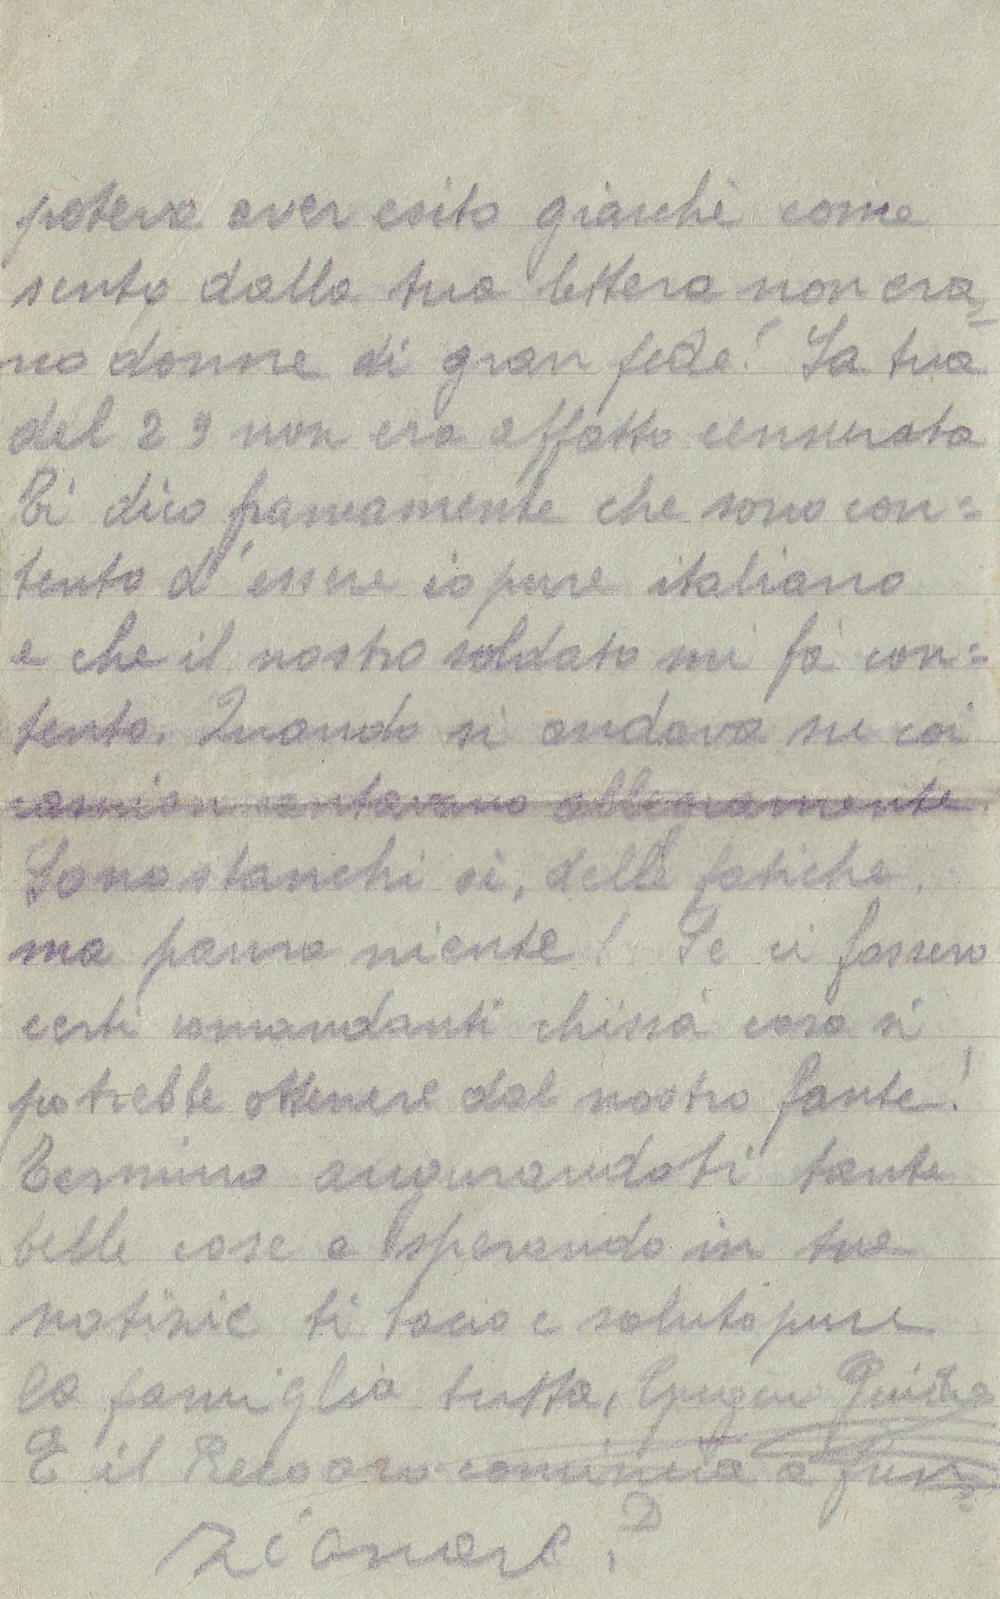 poteva aver esito giacchè come
sento dalla tua lettera non era=
no donne di gran fede! La tua
del 29 non era affatto censurata
Ti dico francamente che sono con=
tento d'essere io pure italiano
e che il nostro soldato mi fà con=
tento. Quando si andava su coi
camion cantavano allegramente.
Sono stanchi sì, delle fatiche,
ma paura niente! Se ci fossero
certi comandanti chissà cosa si
potrebbe ottenere dal nostro fante!
Termino augurandoti tante
belle cose e sperando in tue
notizie ti bacio e saluto pure
la famiglia tutta,
E il Recoaro comincia a fun=
zionare?